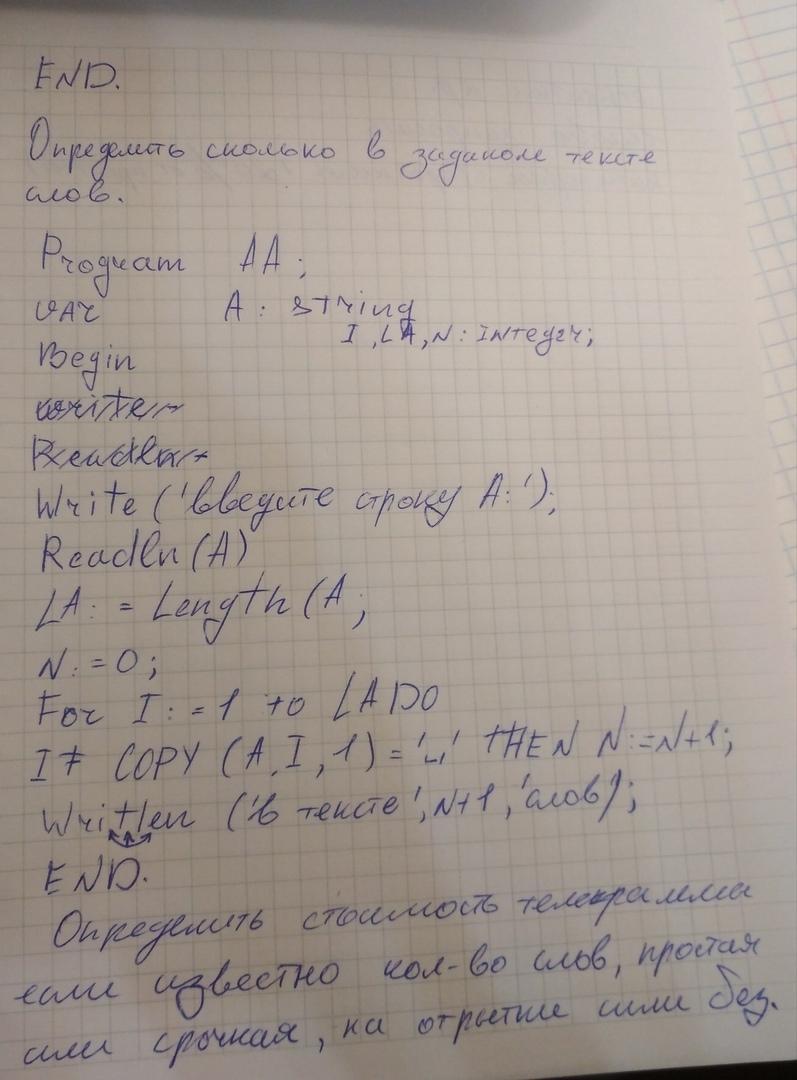 END.
Определить сколько в заданом тексте
слов.
Program AA;
VAR A: string
I, LA, N: INteger;
Begin
write
Readln
Write ('введите строку A:');
Readln(A)
LA:= Length(A;
N:=0;
For I:=1 to LA DO
IF COPY (A,I,1)='␣' THEN N:=N+1;
Writlen ('в тексте', N+1, 'слов);
END.
Определить стоимость телеграммы
если известно кол-во слов, простая
или срочная, на открытке или без.